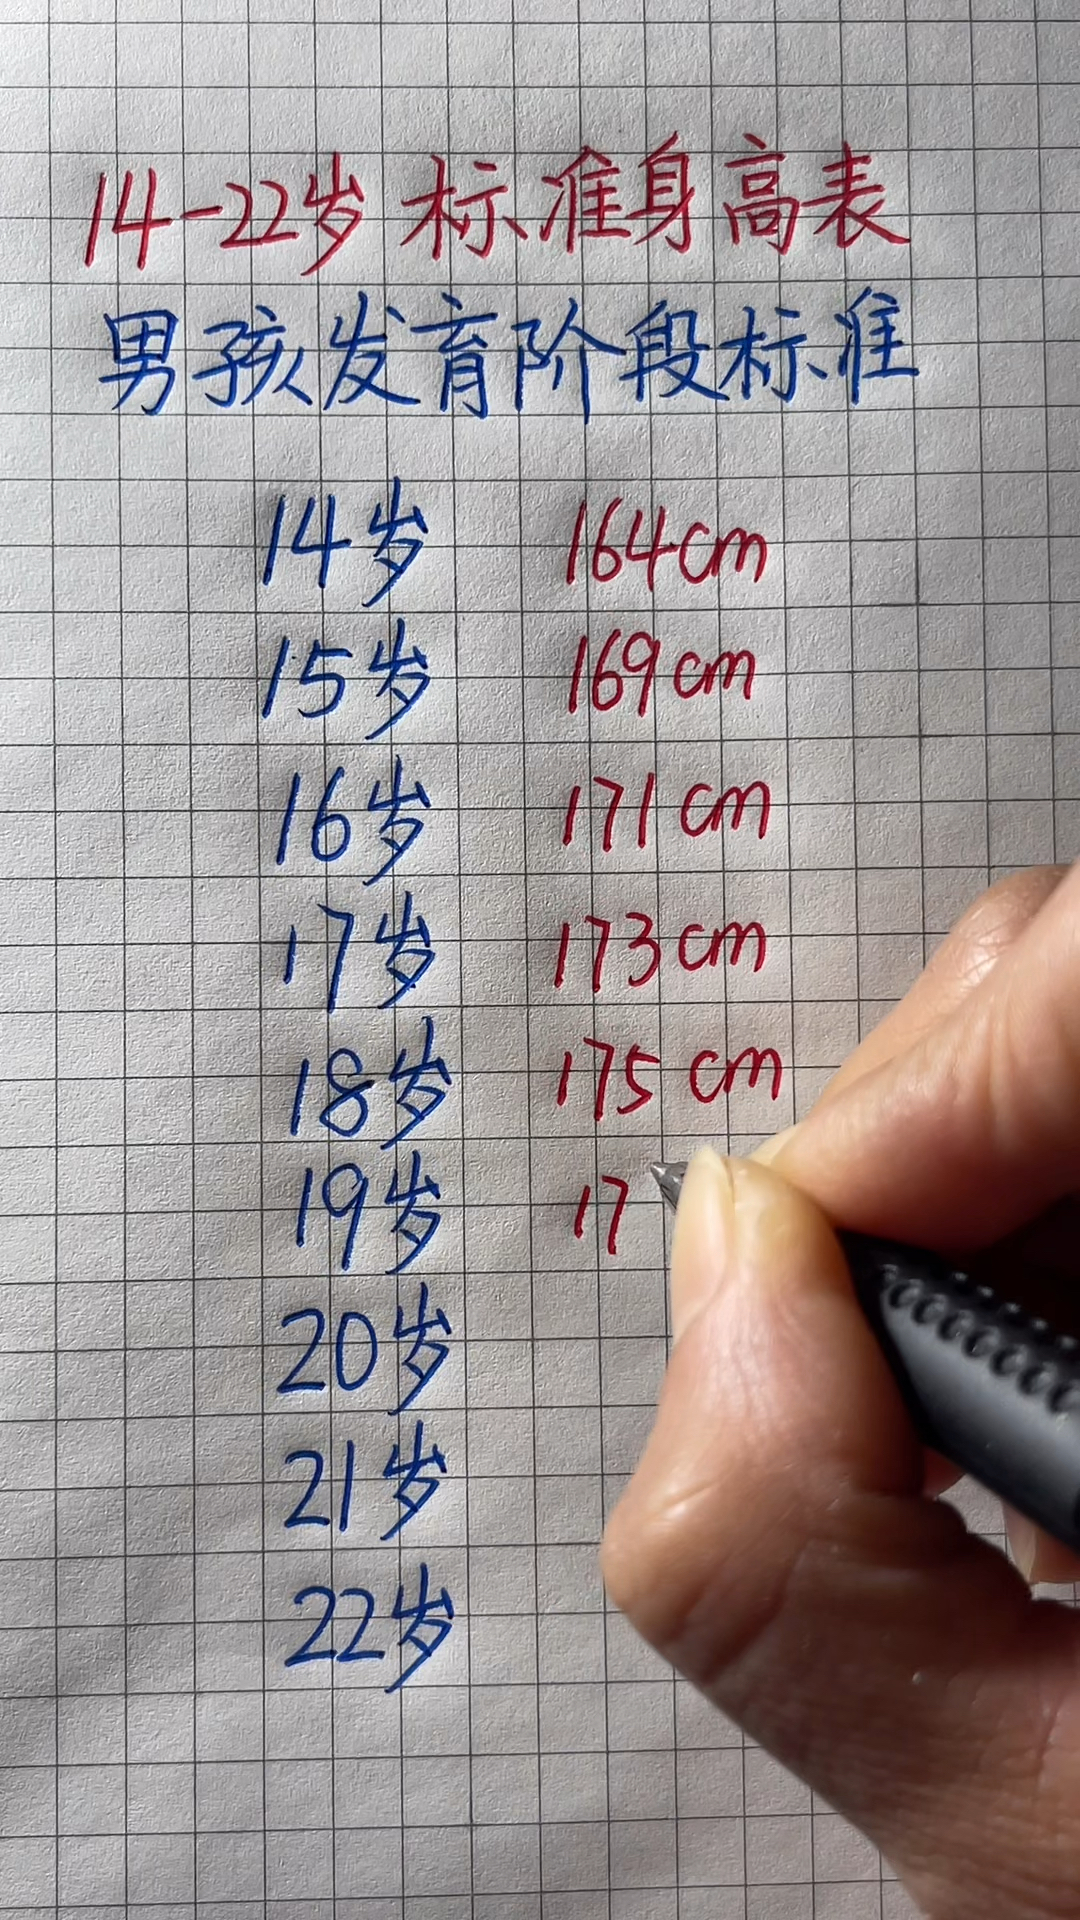 14-22岁 标准身高表
男孩发育阶段标准
14岁 164cm
15岁 169cm
16岁 171cm
17岁 173cm
18岁 175cm
19岁 17
20岁
21岁
22岁